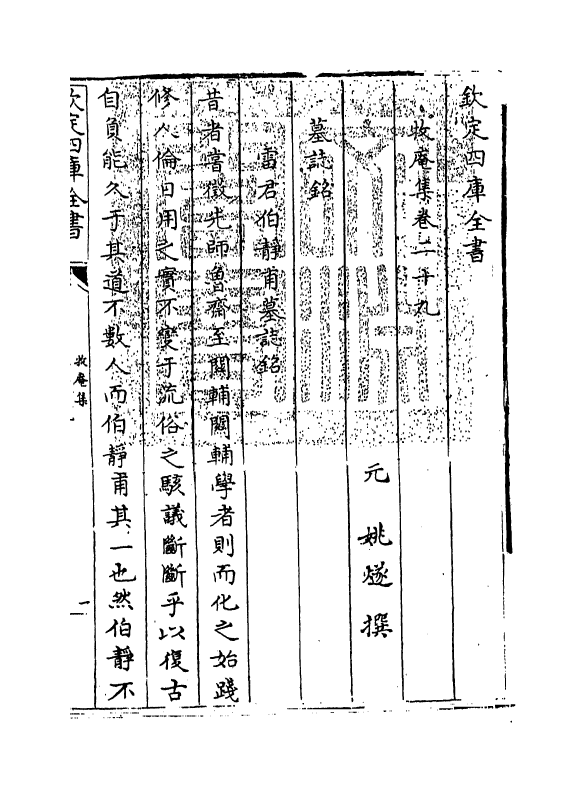 欽定四庫全書
牧庵集卷二十九
元 姚燧 撰
墓誌銘
雷君伯靜甫墓誌銘
昔者嘗徵先師魯齋至關輔關輔學者則而化之始踐
修人倫日用之實不變于流俗之駭議斷斷乎以復古
自負能久于其道不數人而伯靜甫其一也然伯靜不
欽定四庫全書
牧庵集
一